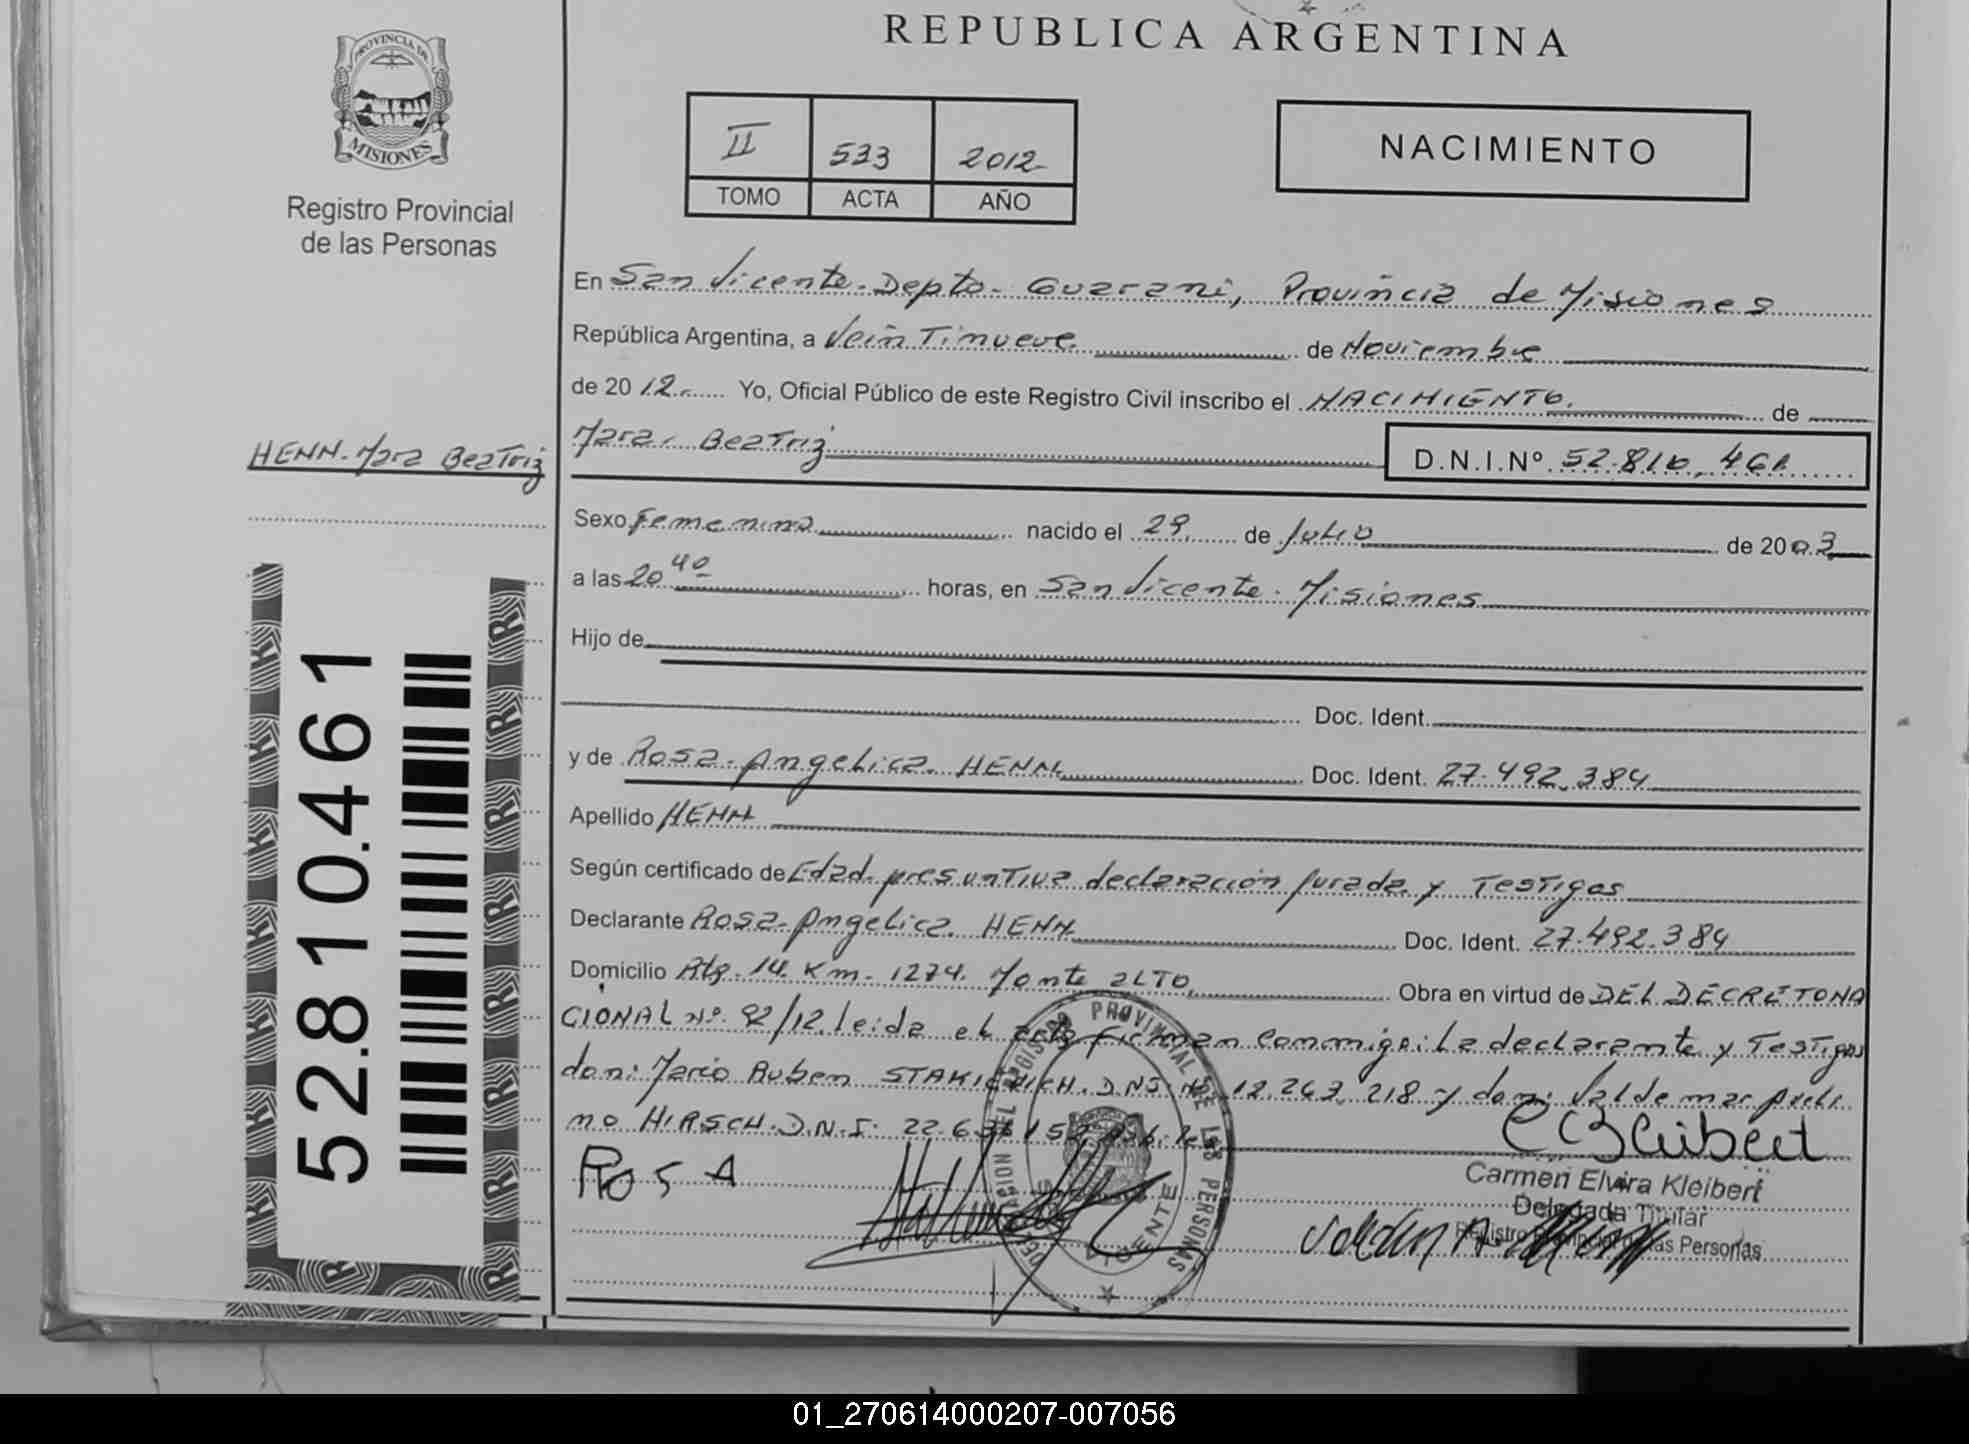 REPUBLICA ARGENTINA
PROVINCIA DE
MISIONES
Registro Provincial
de las Personas
II 533 2012
TOMO ACTA AÑO
NACIMIENTO
En San Vicente. Depto. Guarani, Provincia de Misiones
República Argentina, a Vein Tinueve de Noviembre
de 2012. Yo, Oficial Público de este Registro Civil inscribo el NACIMIENTO. de
Mara, Beatriz
D.N.I.Nº 52.810.461
HENN. Mara Beatriz
Sexo Femenino nacido el 29 de Julio de 2003
a las 20 40 horas, en San Vicente. Misiones
Hijo de
Doc. Ident.
y de Rosa Angelica HENN Doc. Ident. 27.492.384
Apellido HENN
Según certificado de Edad presuntiva declaración jurada y Testigos
Declarante Rosa Angelica HENN Doc. Ident. 27.492.384
Domicilio Rta. 14. Km. 1274. Monte alto Obra en virtud de DEL DECRETO NA
CIONAL Nº 92/12. leida el acta firman conmigo: La declarante y Testigos
don: Mario Ruben D.N.I. Nº 12.263.218 y don: Valdemar
no HIRSCH. D.N.I. 22.
ROSA
Carmen Elvira Kleibert
Delegada Titular
Registro Provincial de las Personas
DELEGACION DEL REGISTRO PROVINCIAL DE LAS PERSONAS
SAN VICENTE
52.810.461
01_270614000207-007056